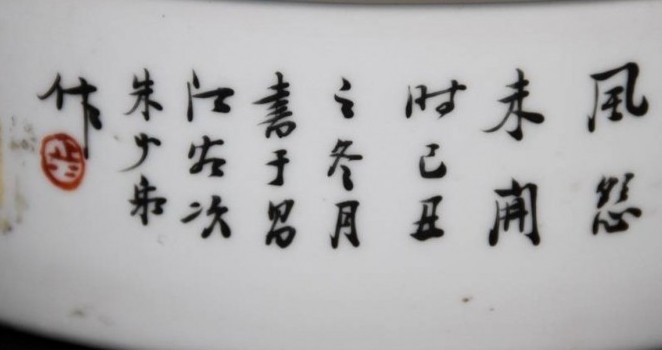 風怨
未開
时己丑
之冬月
書于昌
江客次
朱少泉
作